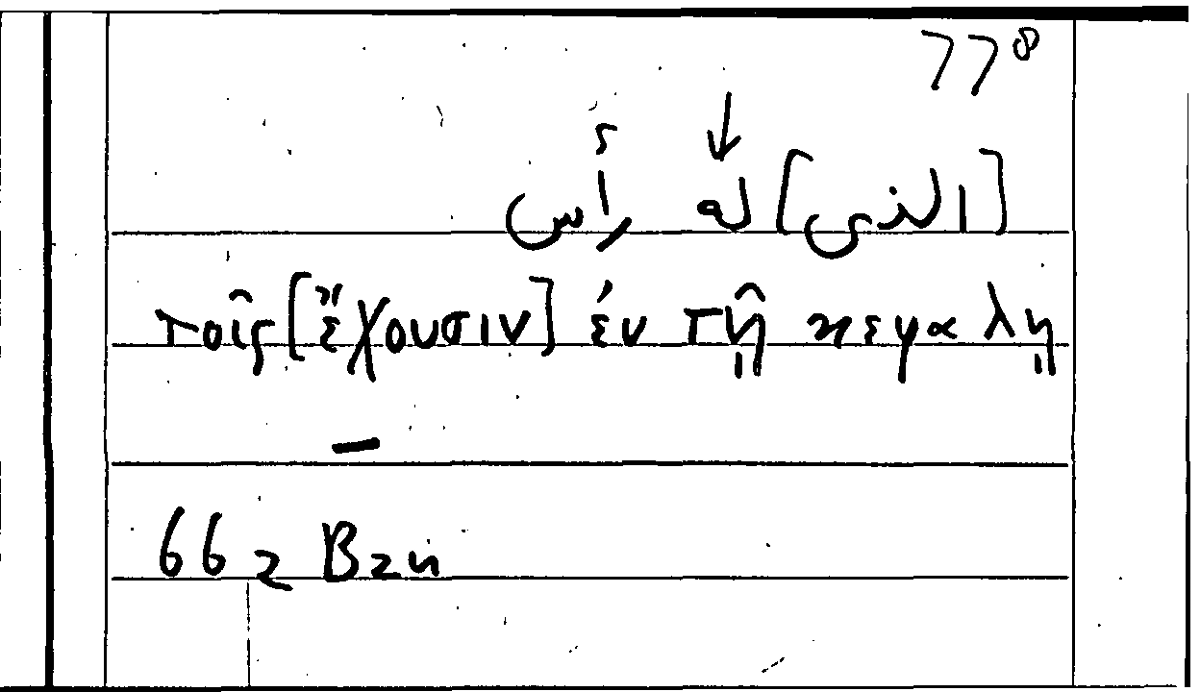 77⁸
↓
[الذى] له رأس
τοῖς [ἔχουσιν] ἐν τῇ κεφαλῃ
662 B24